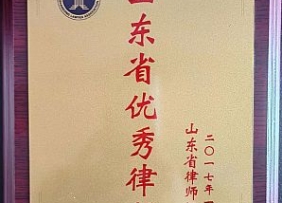 山东省优秀律
二〇一七年
山东省律师